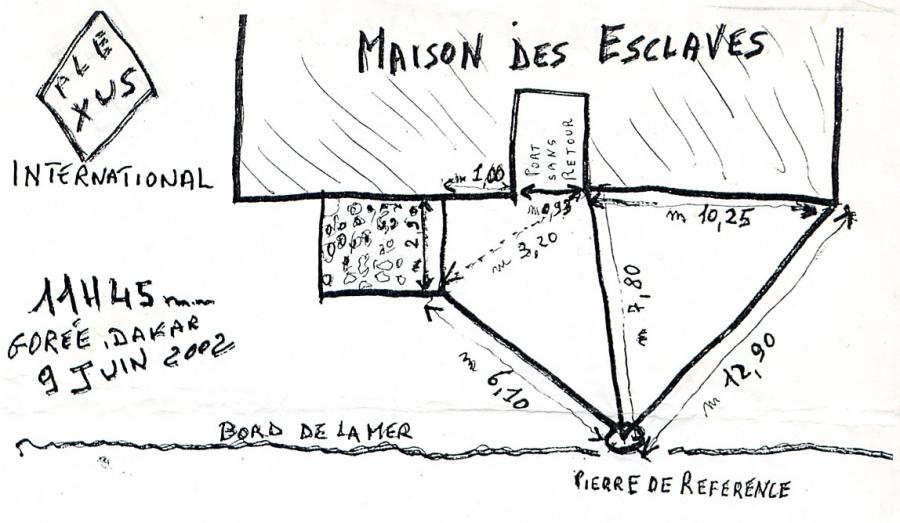 MAISON DES ESCLAVES
ALE
XUS
INTERNATIONAL
PORT
SANS
RETOUR
m 1,00
m 0,95
m 10,25
m 3,20
m 2,5
m 7,80
11H45 m.m
GORÉE, DAKAR
9 JUIN 2002
m 6,10
m 12,90
BORD DE LA MER
PIERRE DE REFERENCE